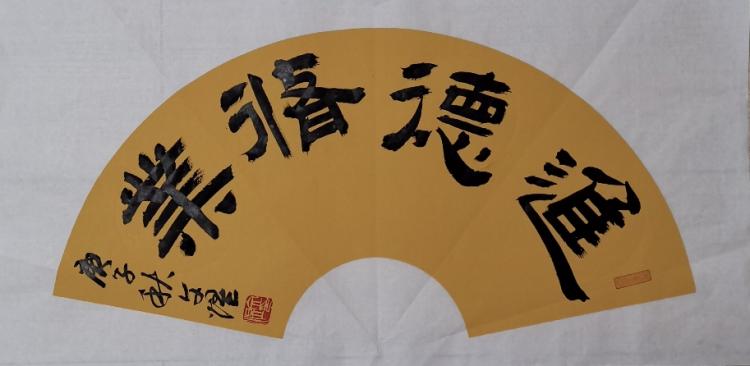 進德脩業
庚子秋